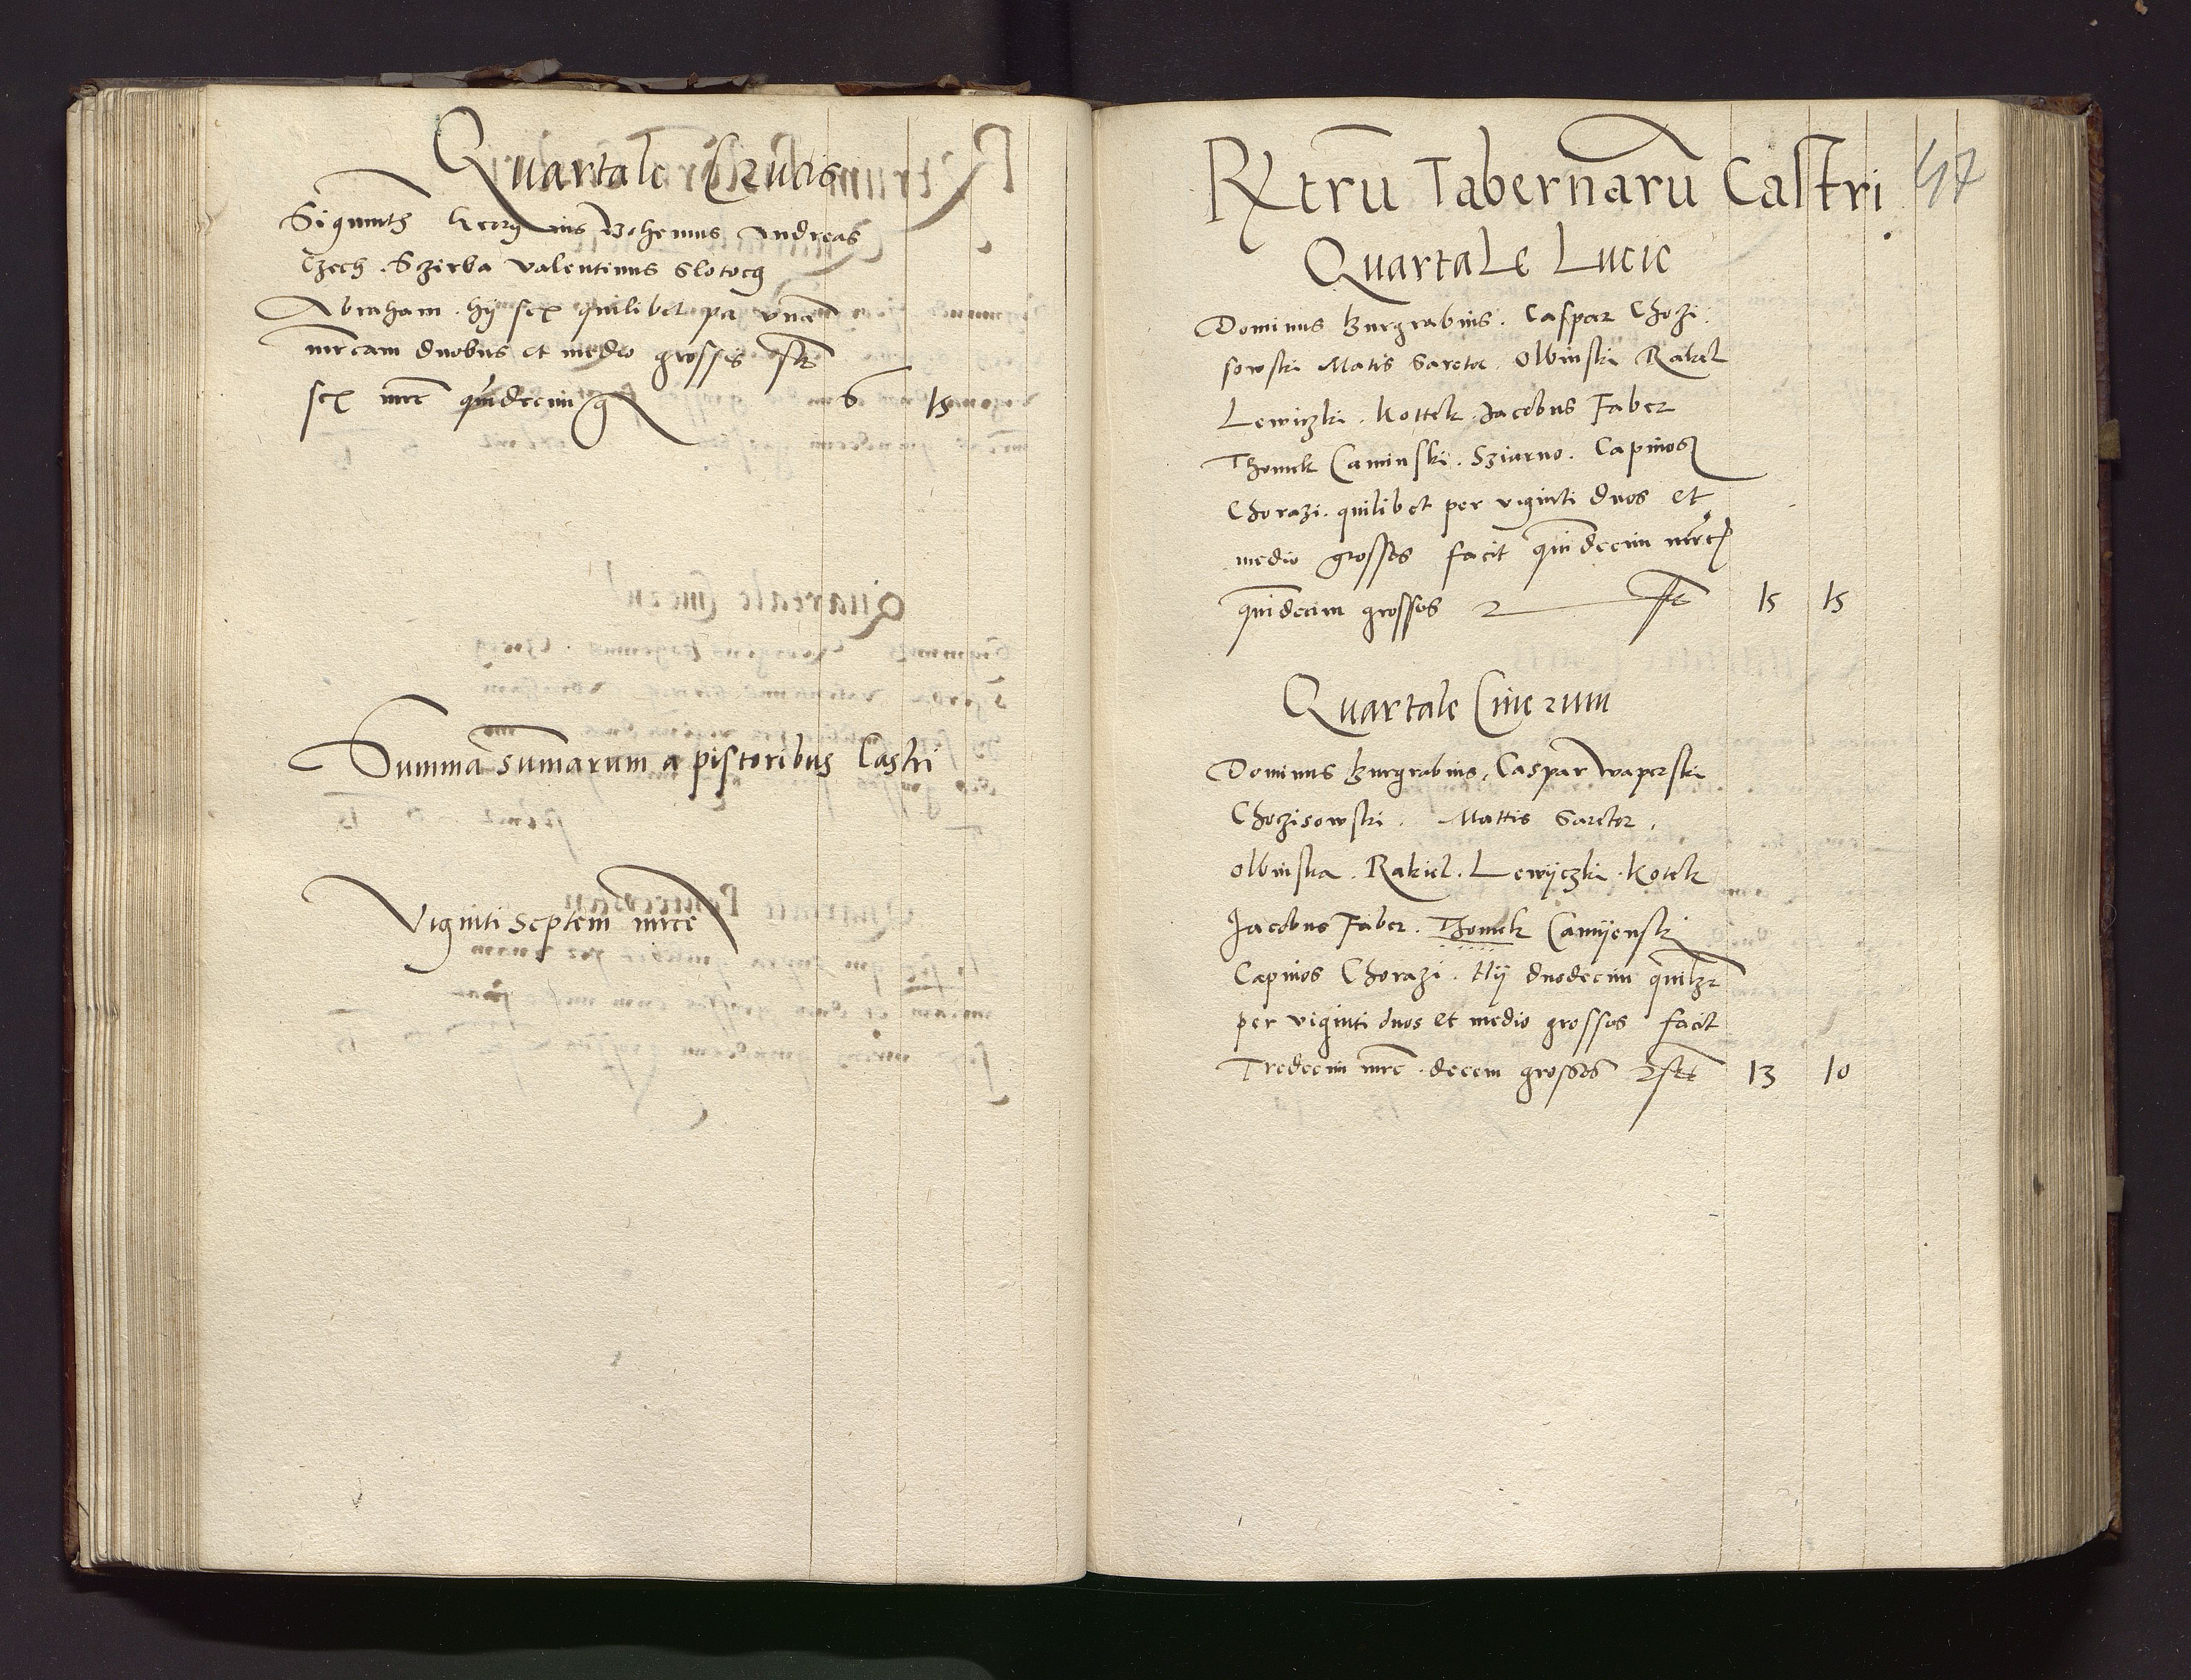 Quartale Crucis
Sigmuth Georgius Bohemus Andreas
Czech . Szirba Valentinus Slotocg
Abraham . hij sex quilibet per vnā
mrcam duobus et medio grossis ft
sex mrc quīdecim g 6 15
Summa summarum a pistoribus Castri
Viginti septem mrce
Rxtrū Tabernarū Castri
Quartale Lucie
Dominus Burgrabius . Caspar Chozi
sowski Matis Sartor . Olbinski Rakel
Lewiczki . Kottek . Jacobus Faber
Thomek Caminski . Sziarno . Capinos
Chorazi . quilibet per viginti duos et
medio grossos facit quīdecim mrc
quīdecim grossos 2 ft 15 15
Quartale Cinerum
Dominus Burgrabius . Caspar Waperski
Chozisowski . Mattis Sartor .
Olbinska . Rakiel . Lewijczki . Kotek
Jacobus Faber . Thomek Camijenski
Capinos Chorazi . Hij duodecim quilzr
per viginti duos et medio grossos facit
Tredecim mrc . decem grossos 2 ft 13 10